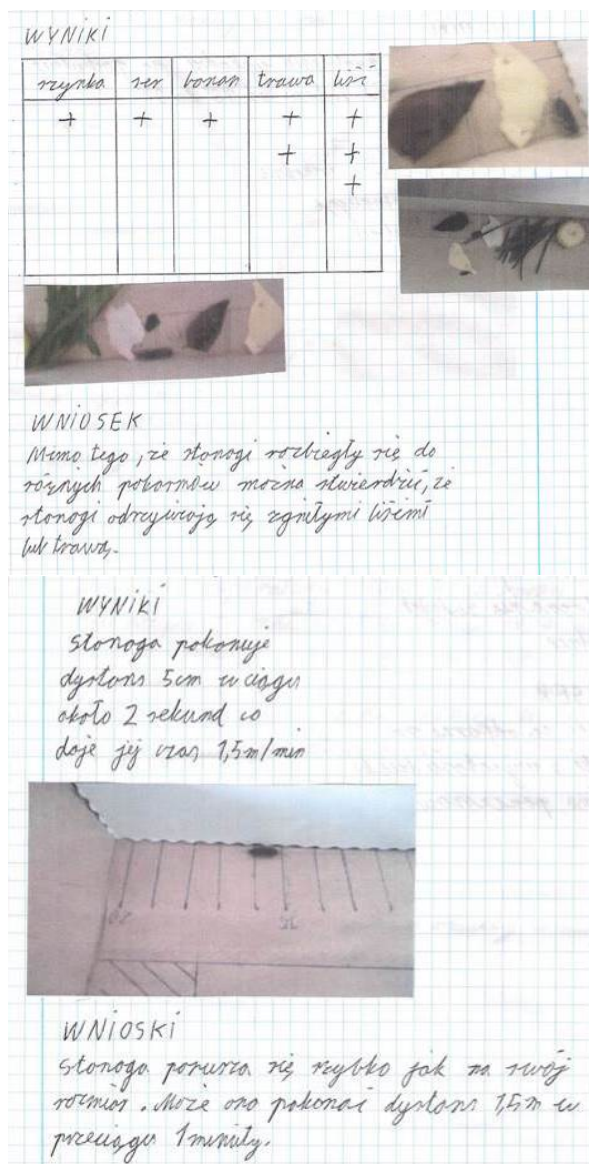 WYNIKI
szynka ser banan trawa liść
+ + + + +
+ +
+
WNIOSEK
Mimo tego, że stonogi rozbiegły się do
różnych pokarmów można stwierdzić, że
stonogi odżywiają się zgniłymi liśćmi
lub trawą.
WYNIKI
Stonoga pokonuje
dystans 5cm w ciągu
około 2 sekund co
daje jej czas 1,5m/min
WNIOSKI
Stonoga porusza się szybko jak na swój
rozmiar. Może ona pokonać dystans 1,5m w
przeciągu 1 minuty.